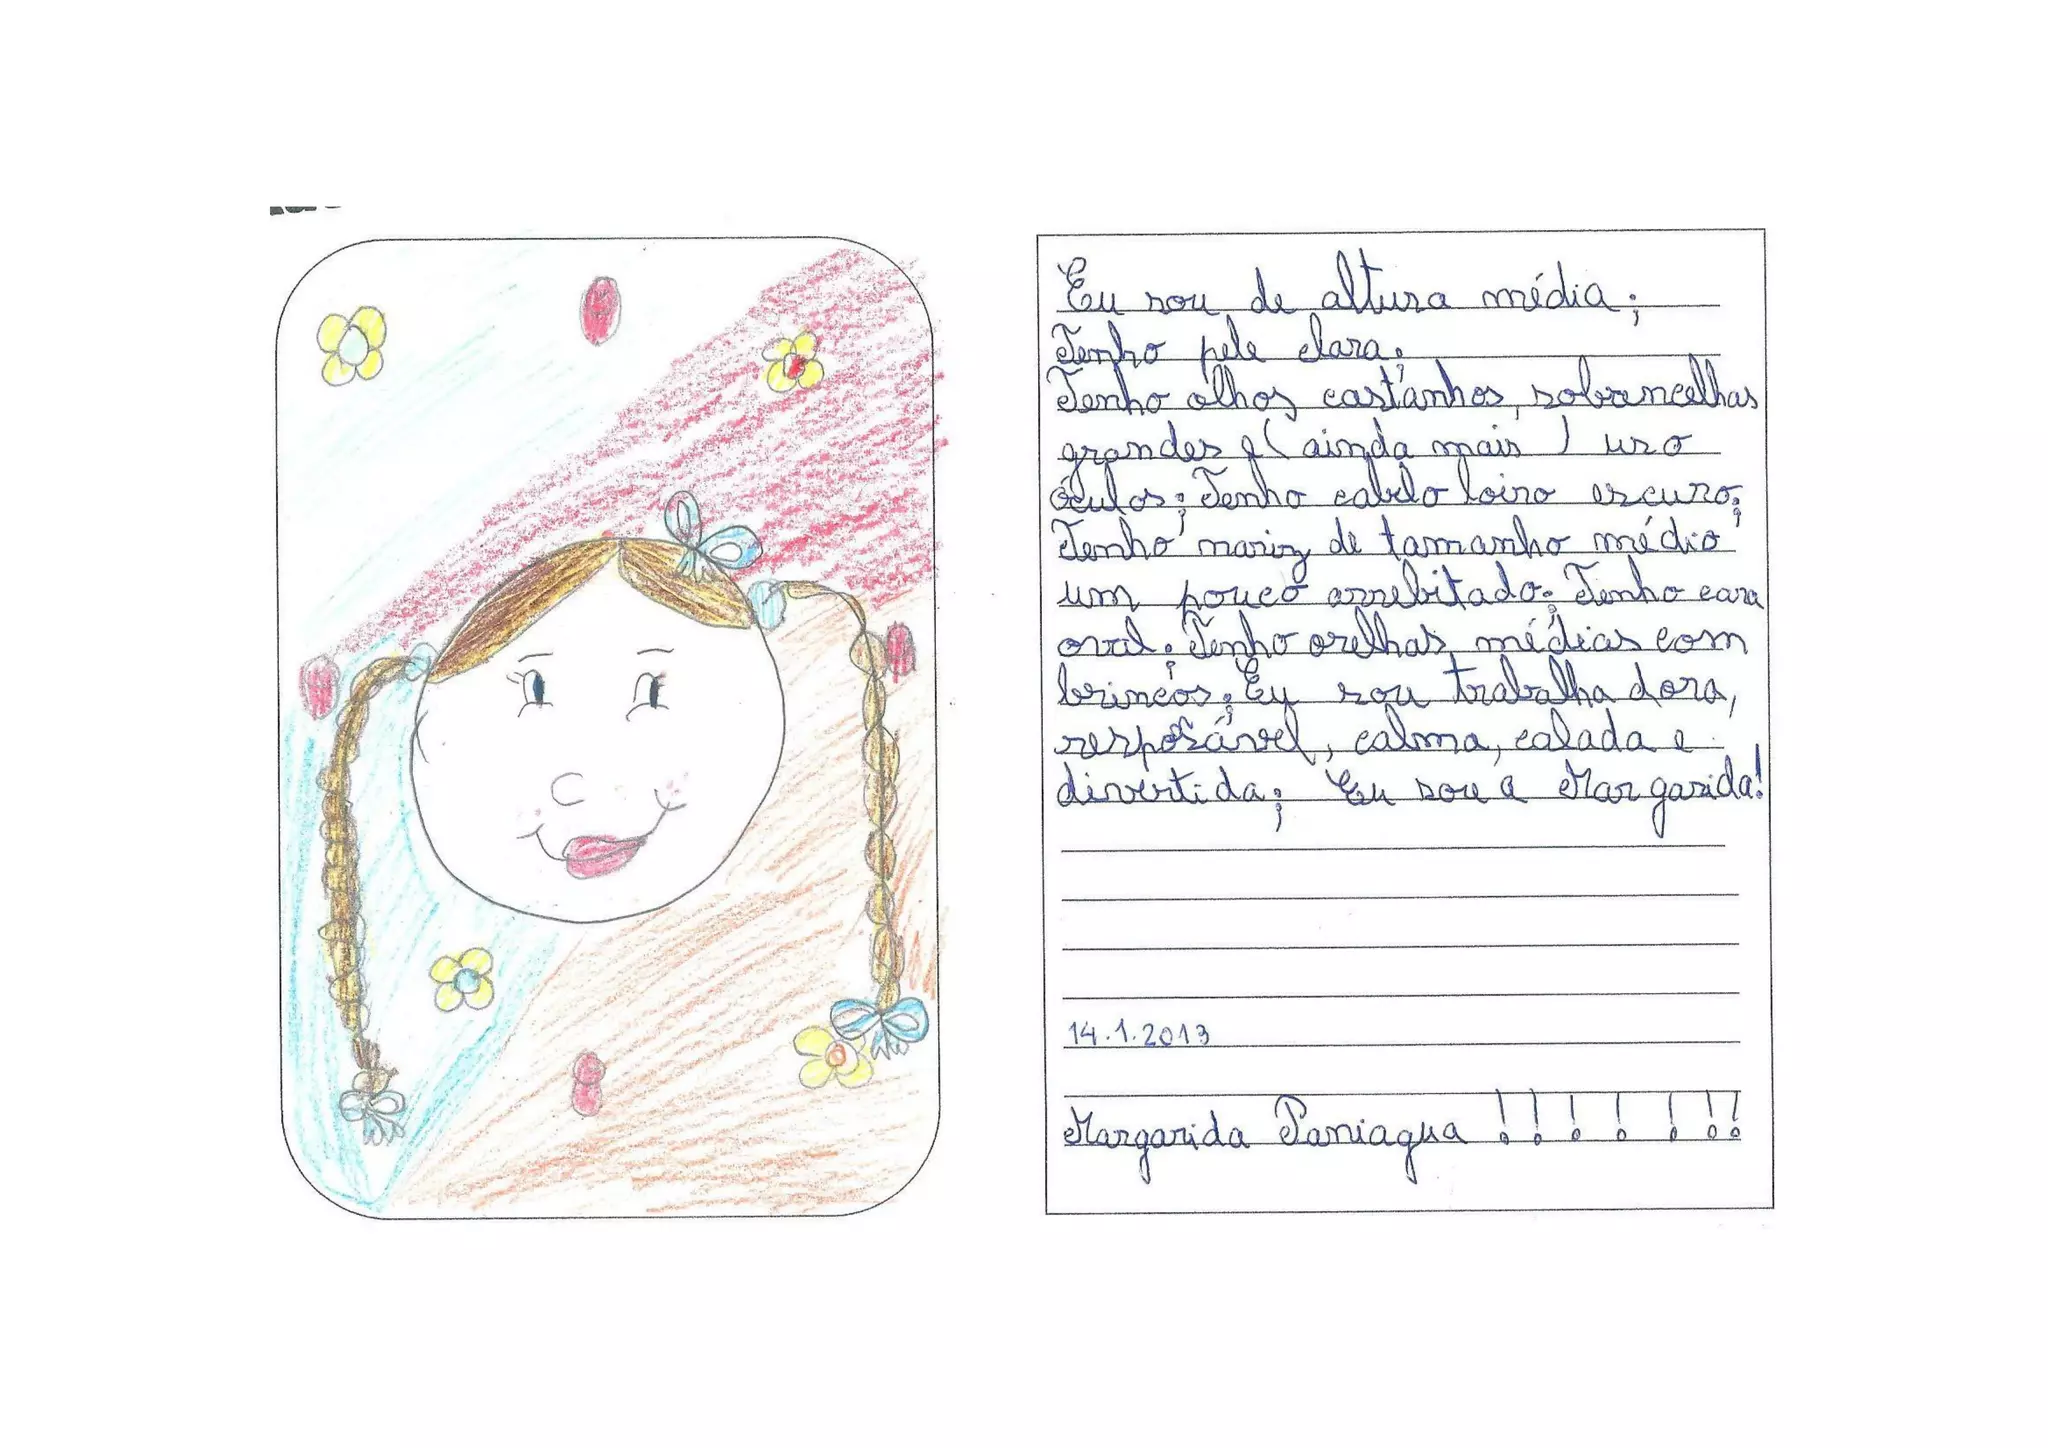 Eu sou de altura média;
Tenho pele clara.
Tenho olhos castanhos, sobrancelhas
grandes e (ainda mais) uso
óculos; Tenho cabelo loiro escuro;
Tenho nariz de tamanho médio
um pouco arrebitado; Tenho cara
oval; Tenho orelhas médias com
brincos; Eu sou trabalhadora,
resposável, calma, calada e
divertida; Eu sou a Margarida!
14.1.2013
Margarida Paniagua !!!!!!!